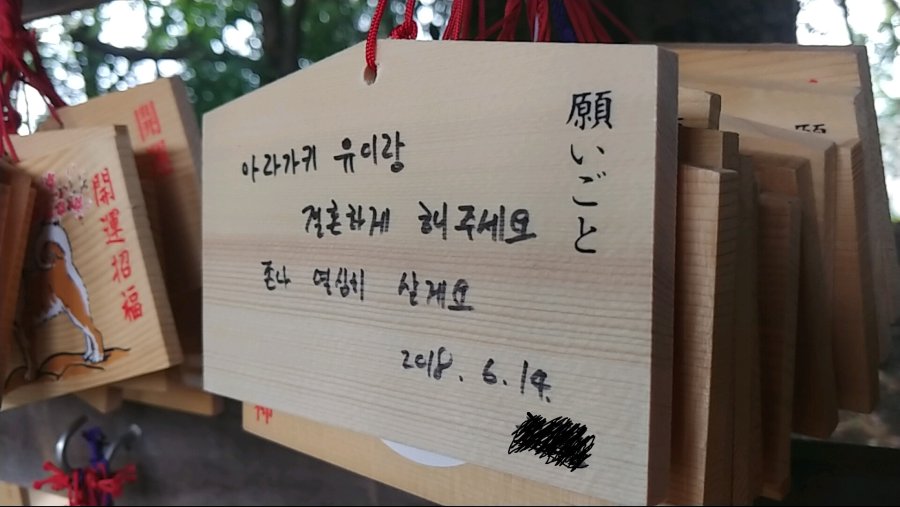 願いごと
아라가키 유이랑
결혼하게 해주세요
존나 열심히 살게요
2018. 6. 14.
開運招福
開